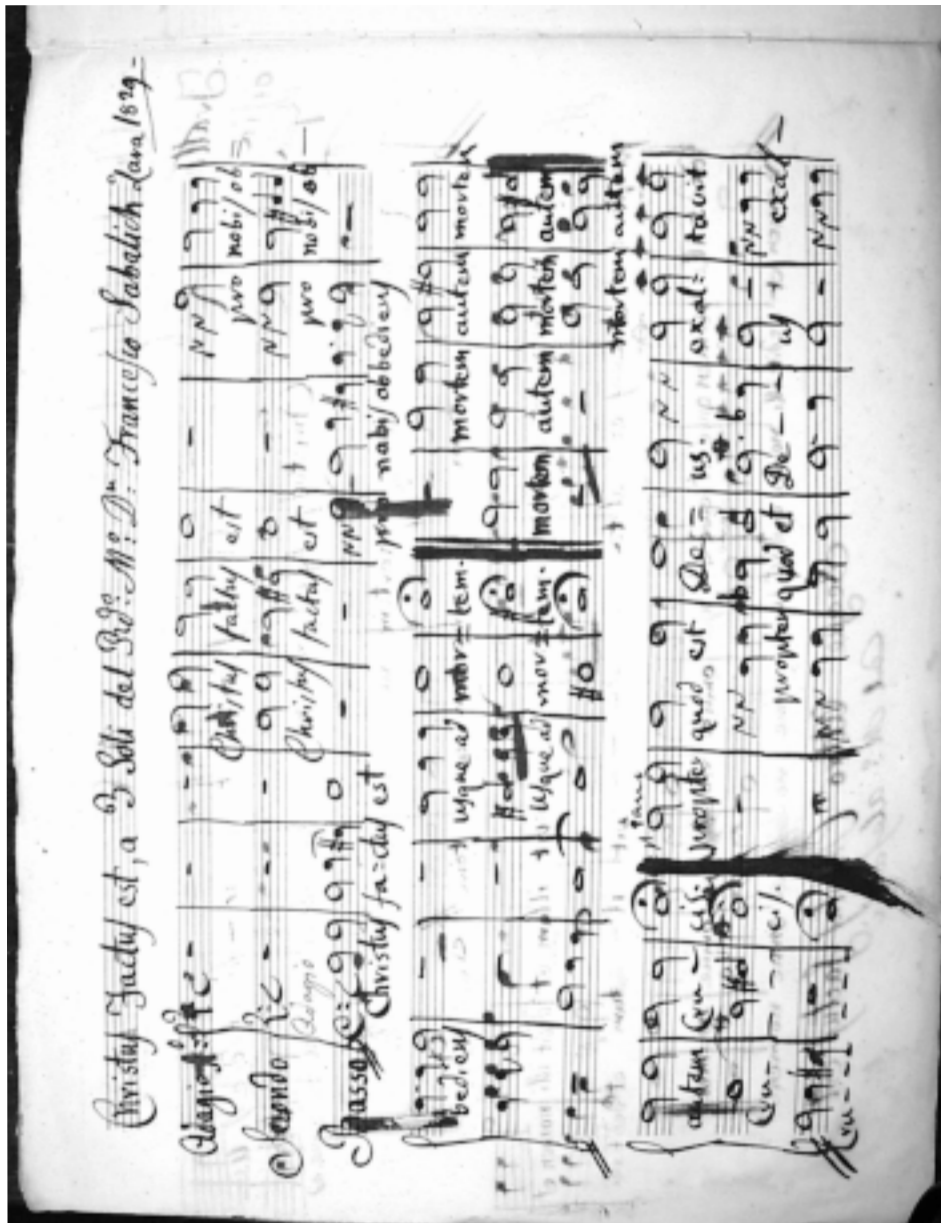 Christus Factus est, a 3 Soli del Mº: Dn: Francesco Sabalich Zara 1829
Adagio
Christus factus est pro nobis/ob=
Secondo
Christus factus est pro nobis/ob
Adagio
Basso
Christus fa=ctus est pro nobis/obbediens
bediens usque ad mor=tem. mortem autem mortem
usque ad mor=tem. mortem autem mortem autem
mortem autem
autem Cru-cis. Propter quod est De= us. exal= tavit
Cru- cis. propter quod et De- us exal-
Cru-